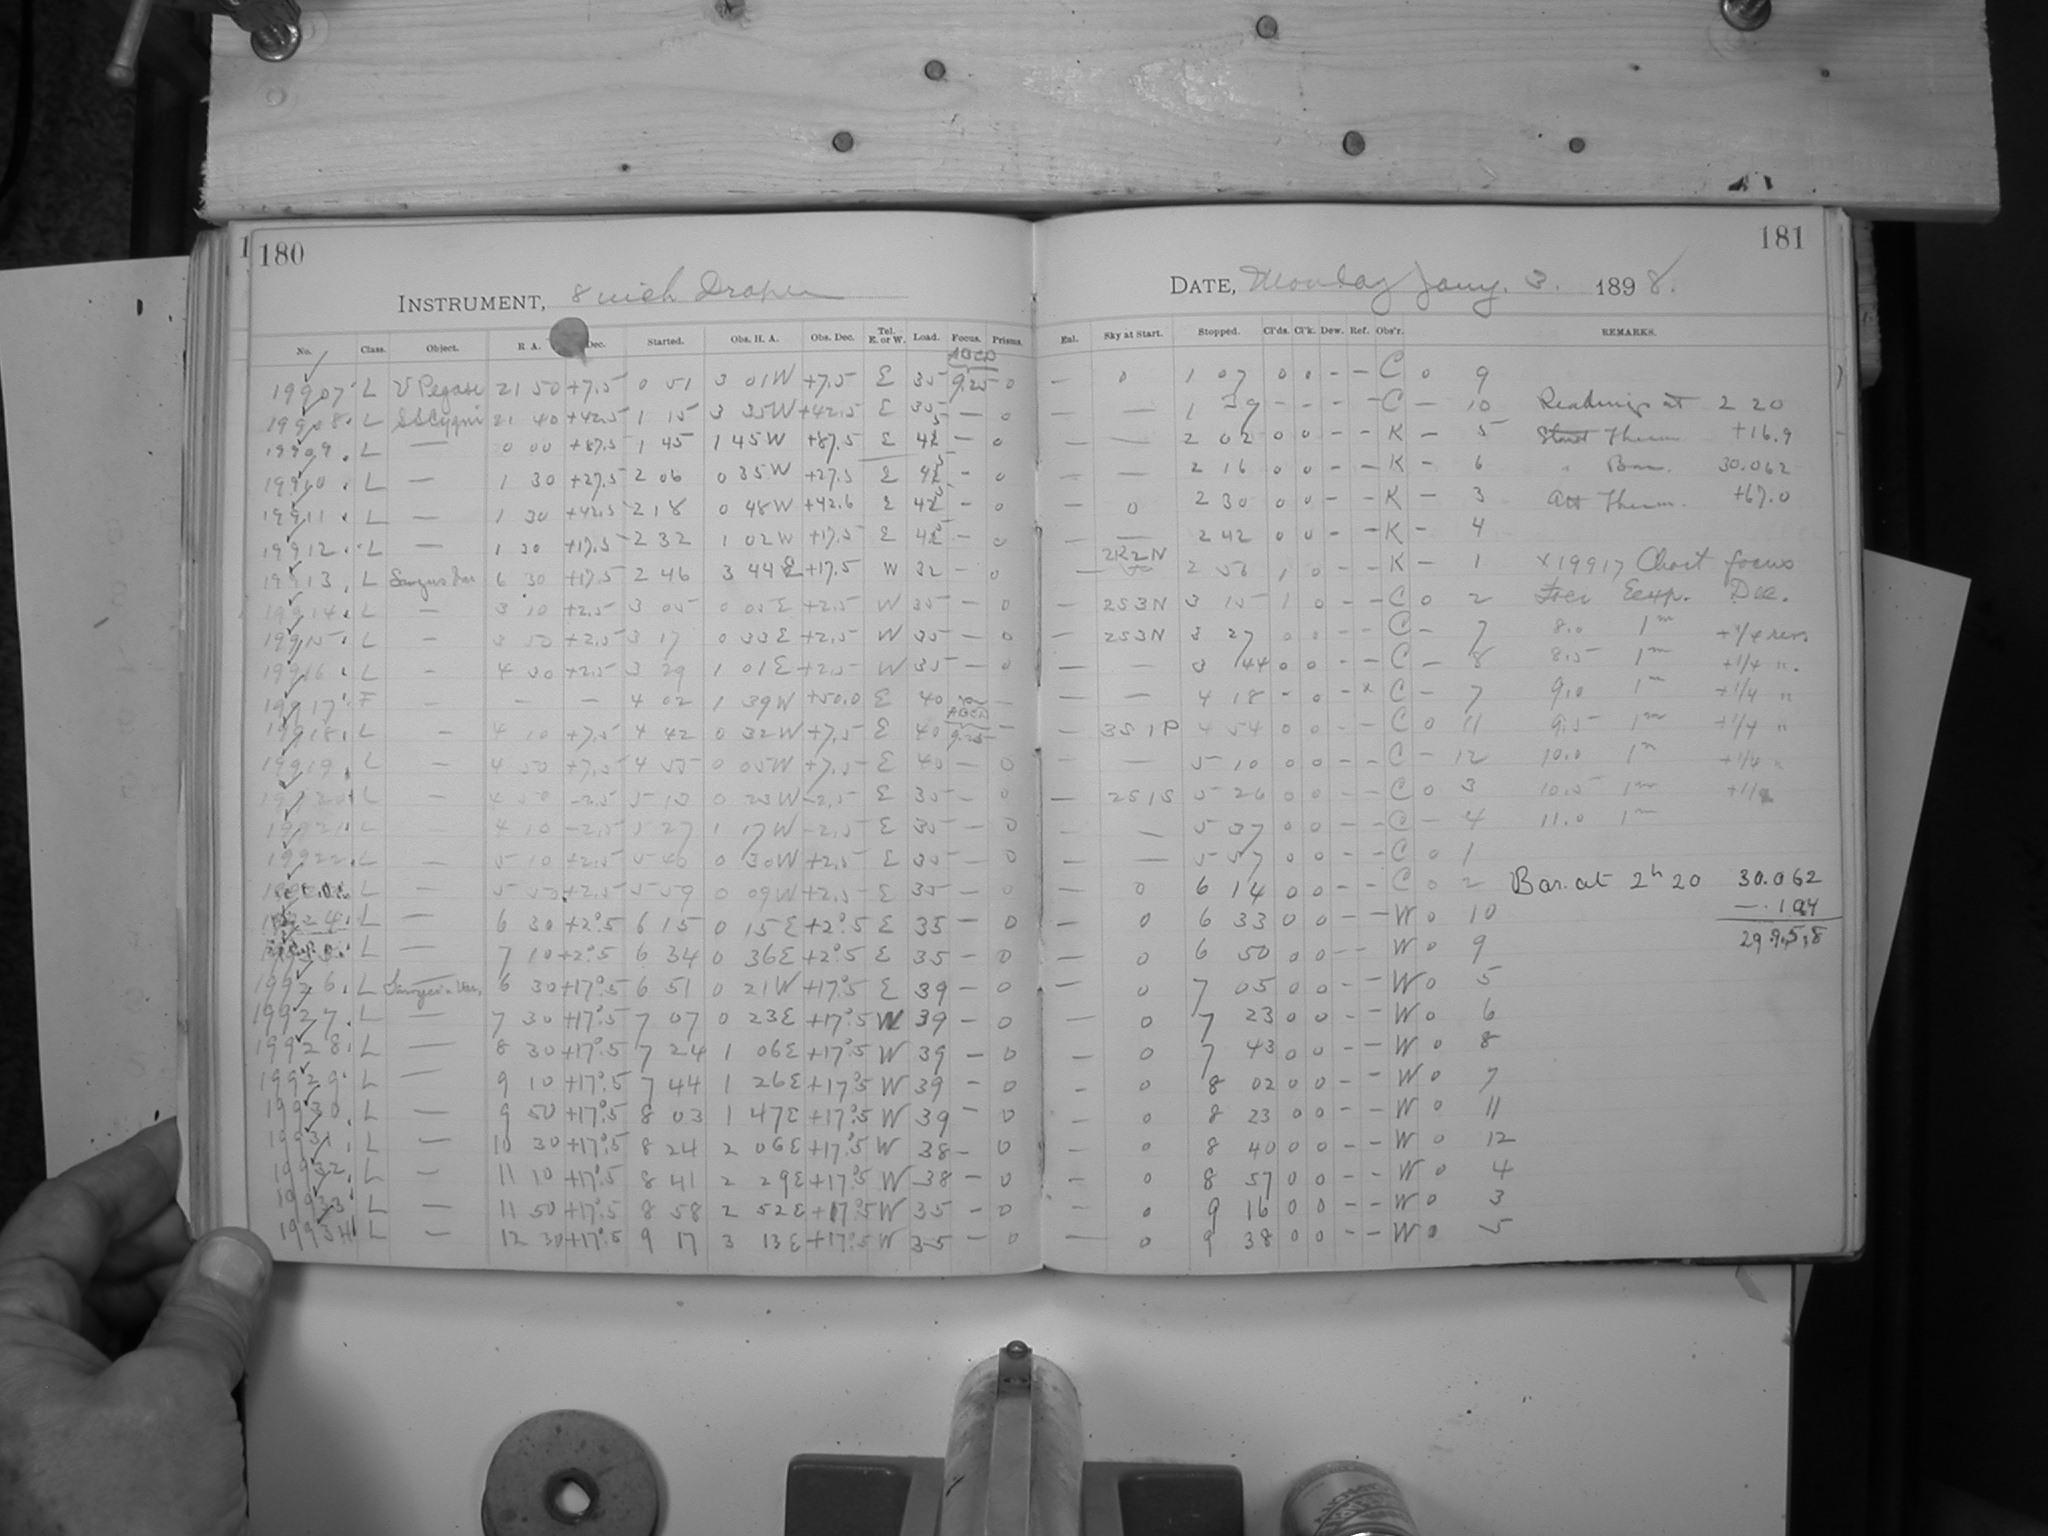 180
INSTRUMENT, 8 inch Draper
No. Class. Object. R. A. Dec. Started. Obs. H. A. Obs. Dec. Tel. E. or W. Load. Focus. Prisms.
ABCD
19907 L V Pegasi 21 50 +7.5 0 51 3 01W +7.5 E 35 9.25 0
19908 L SS Cygni 21 40 +42.5 1 15 3 35W +42.5 E 35 — 0
19909 L — 0 00 +87.5 1 45 1 45W +87.5 E — 0
19910 L — 1 30 +27.5 2 06 0 35W +27.5 E — 0
19911 L — 1 30 +42.5 2 18 0 48W +42.6 E — 0
19912 L — 1 30 +17.5 2 32 1 02W +17.5 E — 0
19913 L 6 30 +17.5 2 46 3 44E +17.5 W 32 — 0
19914 L — 3 10 +2.5 3 05 0 05E +2.5 W 35 — 0
19915 L — 3 50 +2.5 3 17 0 33E +2.5 W 35 — 0
19916 L — 4 30 +2.5 3 29 1 01E +2.5 W 35 — 0
19917 F — — — 4 02 1 39W +50.0 E 40 —
ABCD
19918 L — 4 10 +7.5 4 42 0 32W +7.5 E 40 9.25 —
19919 L — 4 50 +7.5 4 55 0 05W +7.5 E 40 — 0
19920 L — 4 50 -2.5 5 13 0 23W -2.5 E 35 — 0
19921 L — 4 10 -2.5 5 27 1 17W -2.5 E 35 — 0
19922 L — 5 10 +2.5 5 40 0 30W +2.5 E 35 — 0
L — 5 50 +2.5 5 59 0 09W +2.5 E 35 — 0
19924 L — 6 30 +2°.5 6 15 0 15E +2°.5 E 35 — 0
L — 7 10 +2°.5 6 34 0 36E +2°.5 E 35 — 0
19926 L Sawyer's Var. 6 30 +17°.5 6 51 0 21W +17°.5 E 39 — 0
19927 L — 7 30 +17°.5 7 07 0 23E +17°.5 W 39 — 0
19928 L — 8 30 +17°.5 7 24 1 06E +17°.5 W 39 — 0
19929 L — 9 10 +17°.5 7 44 1 26E +17°.5 W 39 — 0
19930 L — 9 50 +17°.5 8 03 1 47E +17°.5 W 39 — 0
19931 L — 10 30 +17°.5 8 24 2 06E +17°.5 W 38 — 0
19932 L — 11 10 +17°.5 8 41 2 29E +17°.5 W 38 — 0
19933 L — 11 50 +17°.5 8 58 2 52E +17°.5 W 35 — 0
19934 L — 12 30 +17°.5 9 17 3 13E +17°.5 W 35 — 0
181
DATE, Monday Jany. 3. 1898.
Eal. Sky at Start. Stopped. Cl'ds. Cl'k. Dew. Ref. Obs'r. REMARKS.
— 0 1 07 0 0 - - C 0 9
— — 1 29 - - - - C — 10 Readings at 2 20
— — 2 02 0 0 - - K — 5 Therm +16.9
— — 2 16 0 0 - - K — 6 " Bar. 30.062
— 0 2 30 0 0 - - K — 3 Att Therm. +67.0
— — 2 42 0 0 - - K — 4
— 2R2N 2 58 1 0 - - K — 1 x19917 Chart focus
— 2S3N 3 15 1 0 - - C 0 2 Exp. Dec.
— 2S3N 3 27 0 0 - - C — 7 8.0 1m +1/4 rev.
— — 3 44 0 0 - - C — 8 8.5 1m +1/4 "
— — 4 18 - 0 - x C — 7 9.0 1m +1/4 "
— 3S1P 4 54 0 0 - - C 0 11 9.5 1m +1/4 "
— — 5 10 0 0 - - C — 12 10.0 1m +1/4 "
— 2S1S 5 26 0 0 - - C 0 3 10.5 1m +1/4
— — 5 37 0 0 - - C — 4 11.0 1m
— — 5 57 0 0 - - C 0 1
— 0 6 14 0 0 - - C 0 2 Bar. at 2h 20 30.062
— 0 6 33 0 0 - - W 0 10 —.104
— 0 6 50 0 0 - - W 0 9 29.958
— 0 7 05 0 0 - - W 0 5
— 0 7 23 0 0 - - W 0 6
— 0 7 43 0 0 - - W 0 8
— 0 8 02 0 0 - - W 0 7
— 0 8 23 0 0 - - W 0 11
— 0 8 40 0 0 - - W 0 12
— 0 8 57 0 0 - - W 0 4
— 0 9 16 0 0 - - W 0 3
— 0 9 38 0 0 - - W 0 5